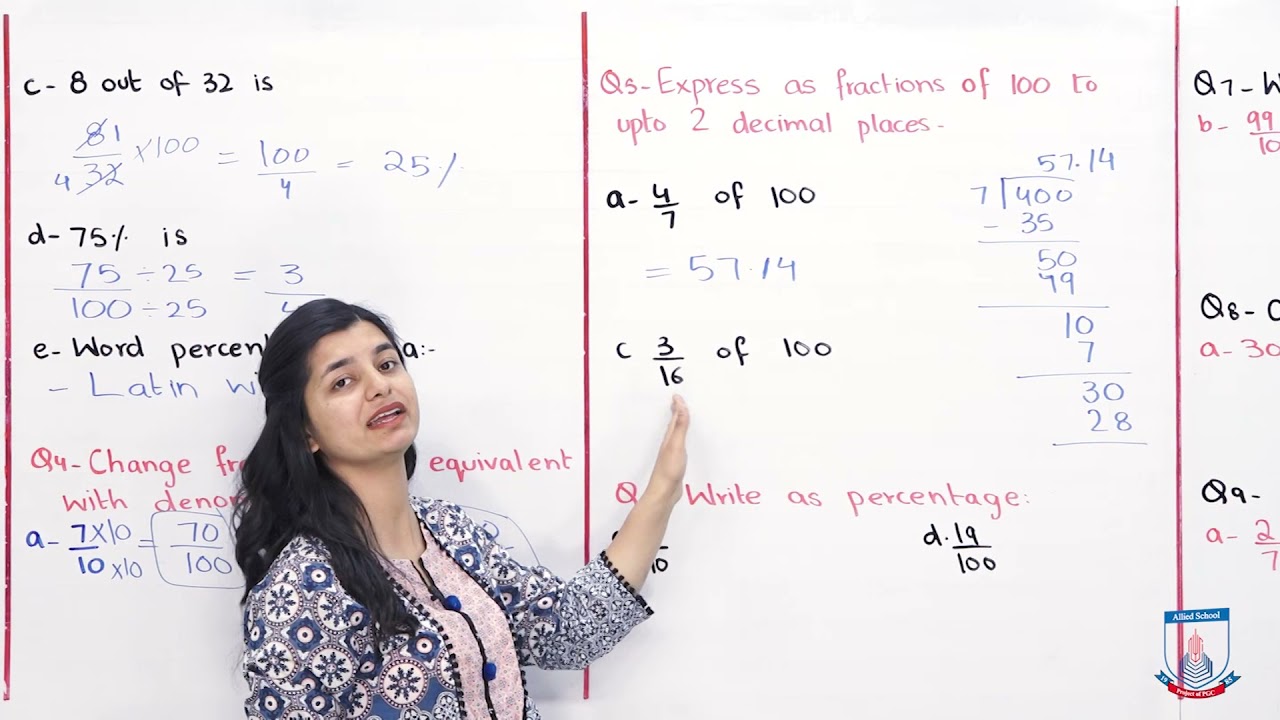 c- 8 out of 32 is
8 1/4 32 × 100 = 100/4 = 25%
d- 75% is
75 ÷ 25 = 3
100 ÷ 25 4
e- Word percent a:-
- Latin
Q4- Change equivalent
with
a- 7×10/10×10 = 70/100
Q5- Express as fractions of 100 to
upto 2 decimal places-
a- 4/7 of 100
= 57.14
57.14
7 400
- 35
50
49
10
7
30
28
c 3/16 of 100
Write as percentage:
10
d. 19/100
Q7- W
b- 99
10
Q8- C
a- 30
Q9-
a- 2
7
Allied School
19 85
Project of PGC